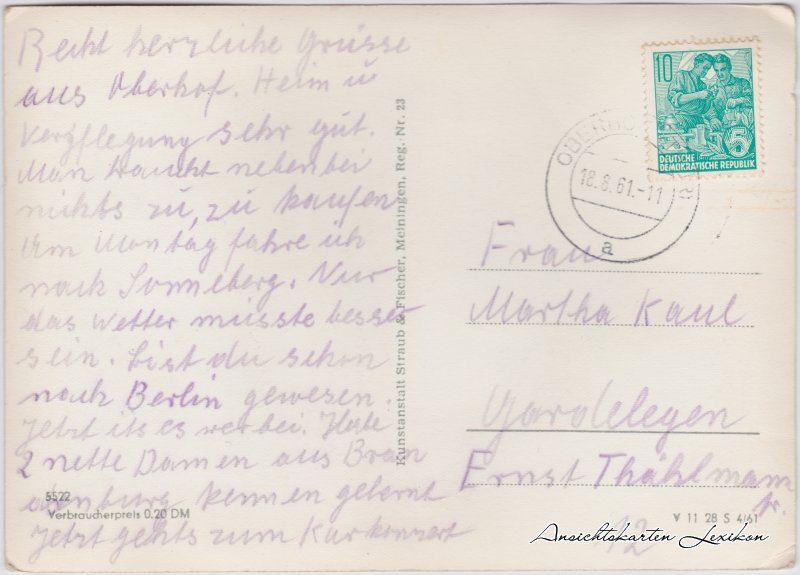 Recht herzliche Grüsse
aus Oberhof. Heim u
Verpflegung sehr gut.
Man braucht nebenbei
nichts zu, zu kaufen
Am Montag fahre ich
nach Sonneberg. Nur
das Wetter müsste besser
sein. Bist du schon
nach Berlin gewesen.
Jetzt its es vorbei. Habe
2 nette Damen aus Bran
denburg kennen gelernt
Jetzt gehts zum Kurkonzert
5522
Verbraucherpreis 0.20 DM
Kunstanstalt Straub & Fischer, Meiningen, Reg. Nr. 23
10
5
DEUTSCHE
DEMOKRATISCHE REPUBLIK
18.8.61.-11
a
Frau
Martha Kaul
Gardelegen
Ernst Thählmann
Str.
12
V 11 28 S 4/61
Ansichtskarten Lexikon